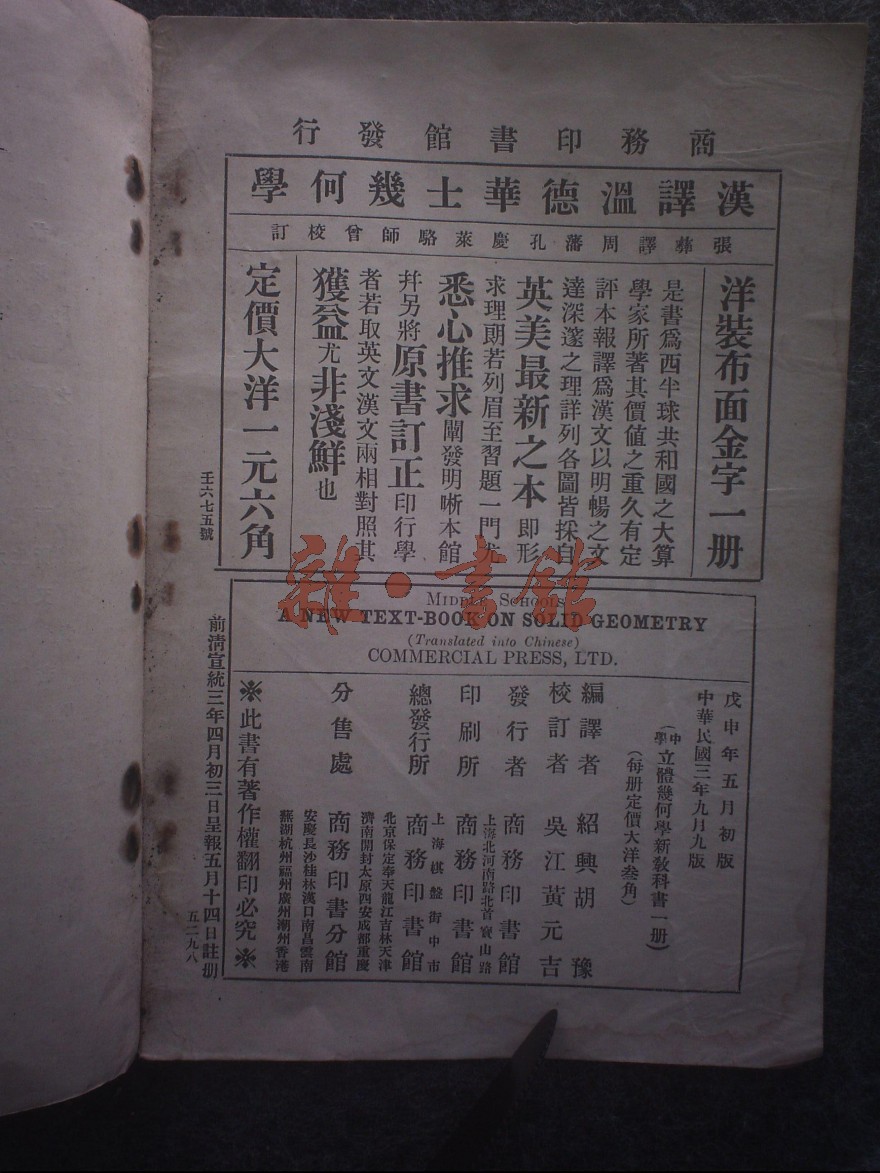 商務印書館發行
漢譯溫德華士幾何學
張彝譯周藩孔慶萊駱師曾校訂
洋裝布面金字一册
是書爲西半球共和國之大算
學家所著其價値之重久有定
評本報譯爲漢文以明暢之文
達深邃之理詳列各圖皆採自
英美最新之本即形
求理朗若列眉至習題一門尤
悉心推求闡發明晰本館
幷另將原書訂正印行學
者若取英文漢文兩相對照其
獲益尤非淺鮮也
定價大洋一元六角
壬六七五號
雜·書館
MIDDLE SCHOOLS
A NEW TEXT-BOOK ON SOLID GEOMETRY
(Translated into Chinese)
COMMERCIAL PRESS, LTD.
戊申年五月初版
中華民國三年九月九版
(中學立體幾何學新教科書一册)
(每册定價大洋叁角)
編譯者 紹興胡豫
校訂者 吳江黃元吉
發行者 商務印書館
上海北河南路北首寶山路
印刷所 商務印書館
上海棋盤街中市
總發行所 商務印書館
北京保定奉天龍江吉林天津
濟南開封太原西安成都重慶
分售處 商務印書分館
安慶長沙桂林漢口南昌雲南
蕪湖杭州福州廣州潮州香港
※此書有著作權翻印必究※
前淸宣統三年四月初三日呈報五月十四日註册
五二九八